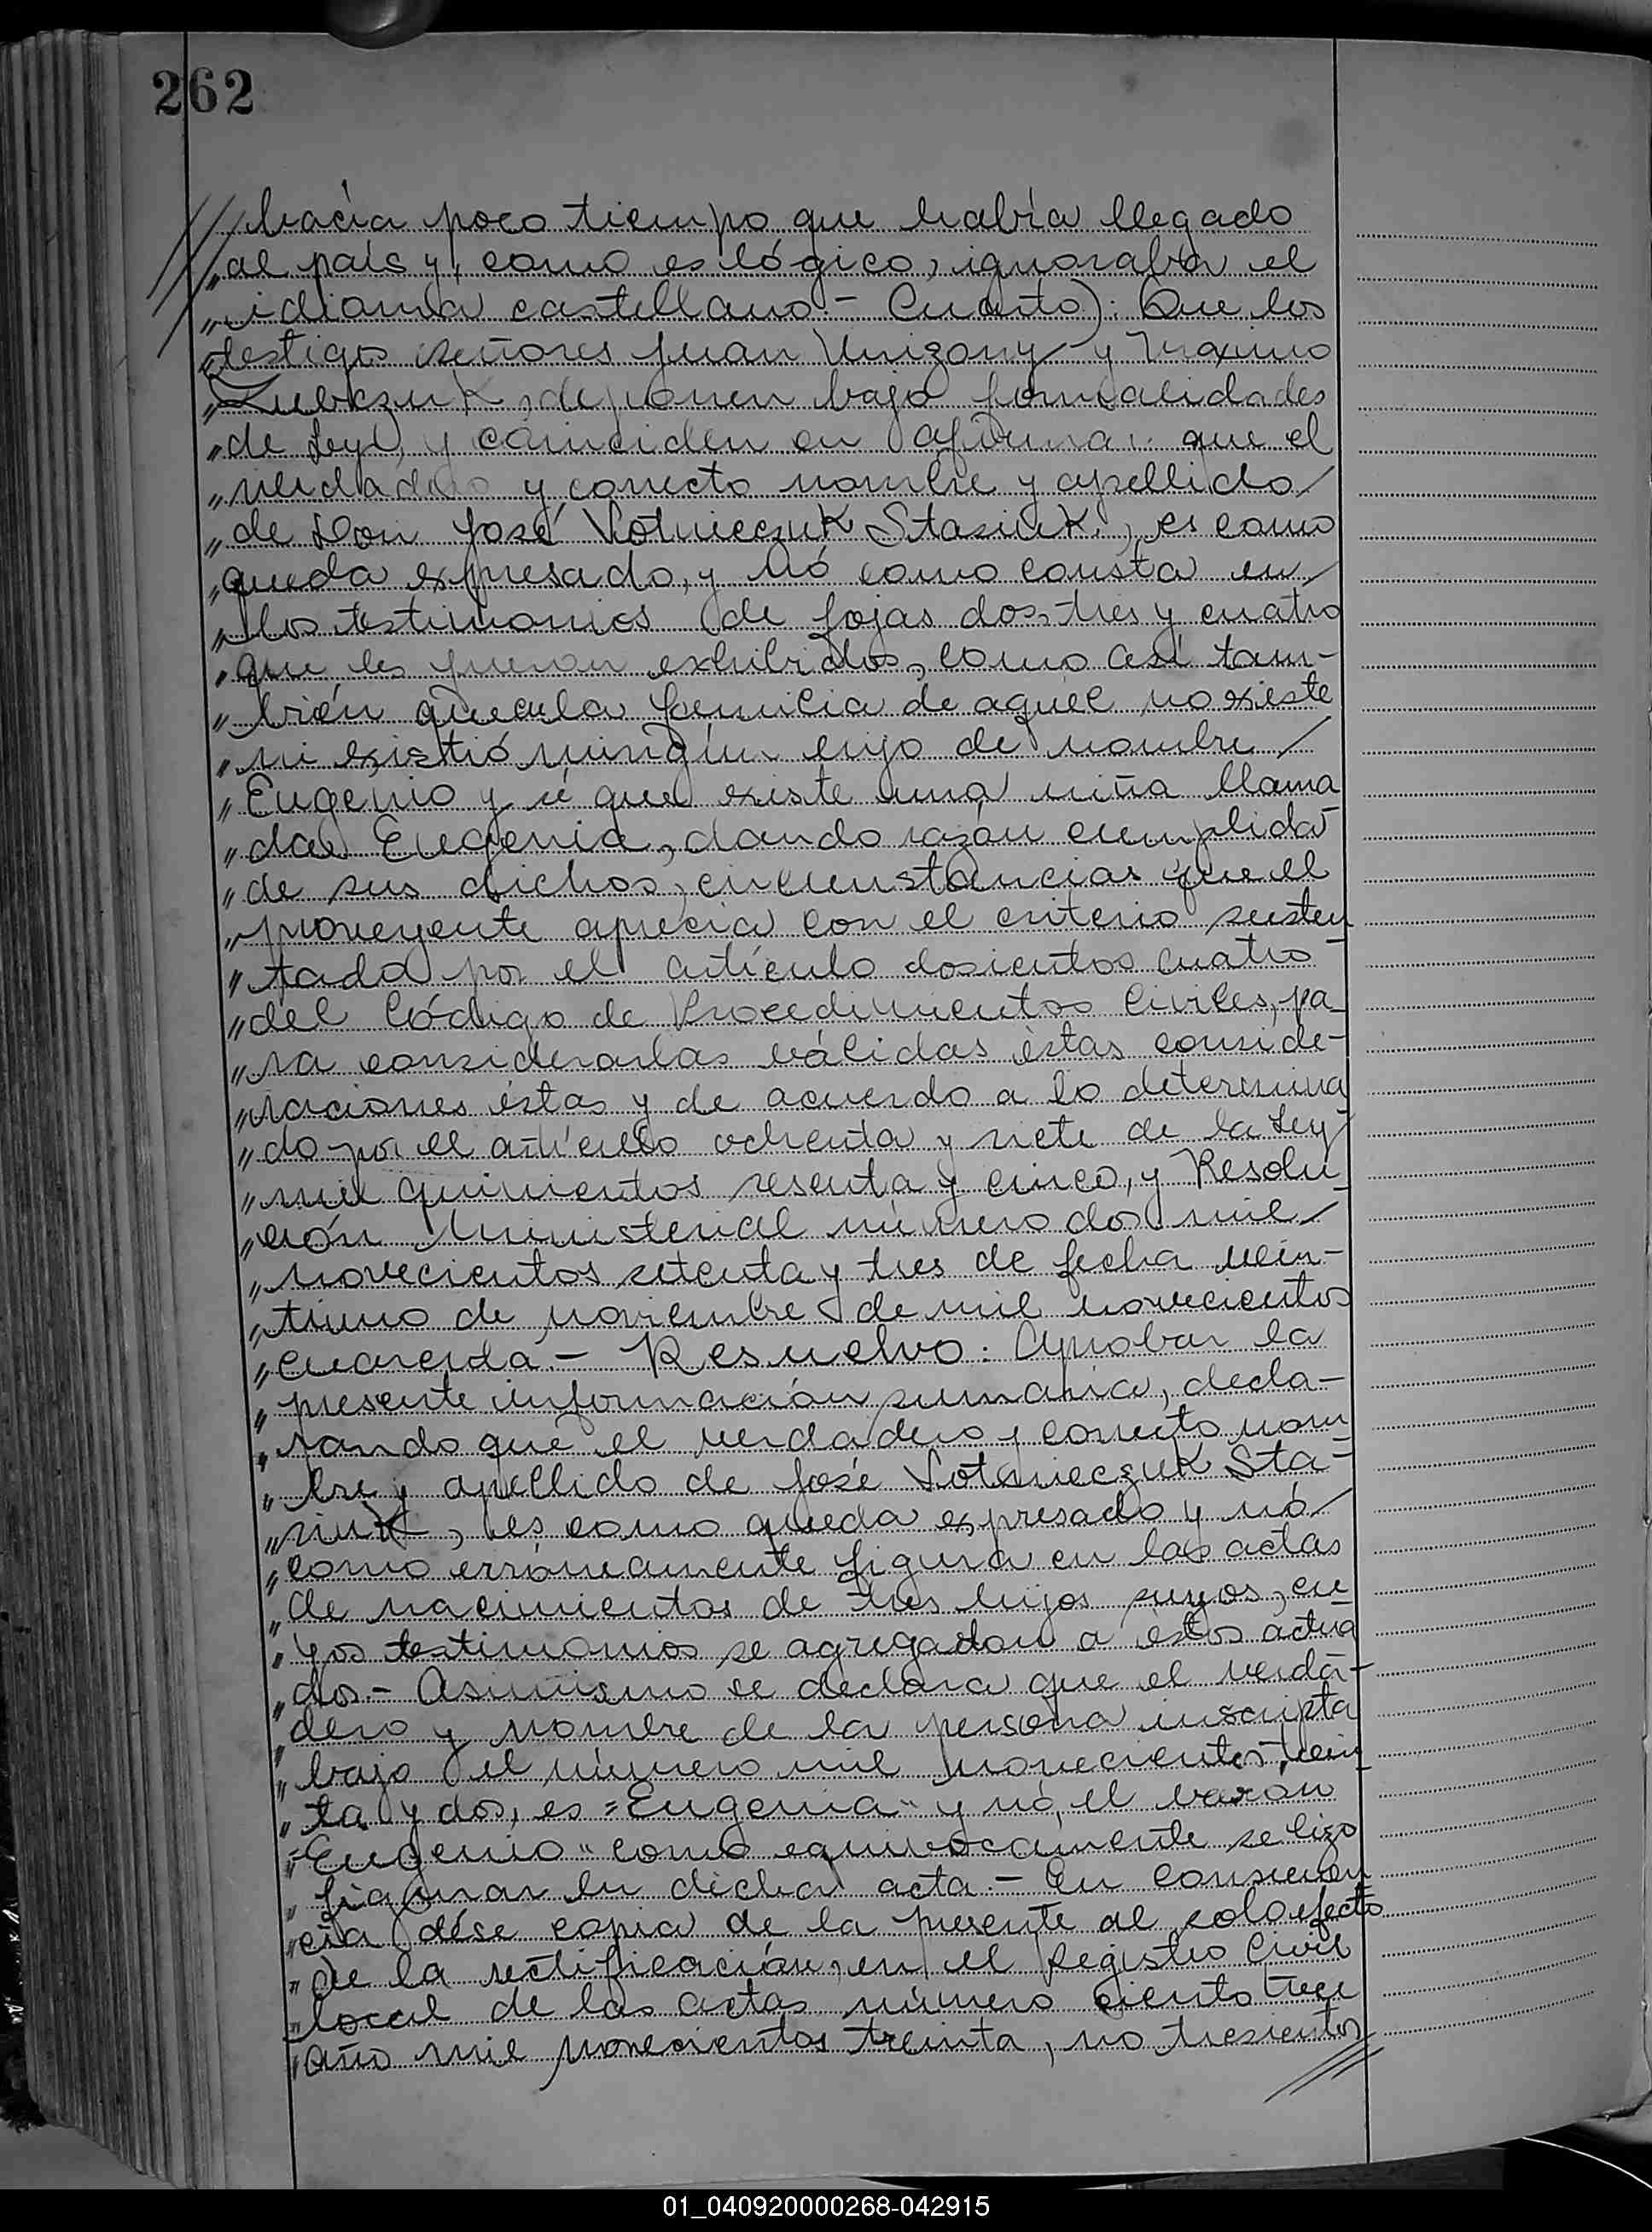 262
hacía poco tiempo que había llegado
" al país y, como es lógico, ignoraba el
" idioma castellano.- Cuarto): Que los
" testigos señores Juan y Máximo
" deponen bajo formalidades
" de Ley, y coinciden en afirmar que el
" verdadero y correcto nombre y apellido/
" de Don José Votnieczuk Stasiuk, es como
" queda expresado, y nó como consta en/
" los testimonios de fojas dos, tres y cuatro
" que les fueron exhibidos, como así tam-
" bién que en la familia de aquél no existe
" ni existió ningún hijo de nombre/
" Eugenio y sí que existe una niña llama
" da Eugenia, dando razón cumplida
" de sus dichos, circunstancias que el
" proveyente aprecia con el criterio susten
" tado por el artículo dosientos cuatro
" del Código de Procedimientos Civiles, pa_
" ra considerarlas válidas éstas conside-
" raciones éstas y de acuerdo a lo determina
" do por el artículo ochenta y siete de la Ley
" mil quinientos sesenta y cinco, y Resolu_
" ción Ministerial número dos mil/
" novecientos setenta y tres de fecha vein-
" tiuno de noviembre de mil novecientos
" cuarenta.- Resuelvo: Aprobar la
" presente información sumaria, decla-
" rando que el verdadero y correcto nom
" bre y apellido de José Votnieczuk Sta-
" siuk, es como queda expresado y nó/
" como erróneamente figura en las actas
" de nacimientos de tres hijos suyos, cu
" yos testimonios se agregaron a éstos actua
" dos.- Asimismo se declara que el verda-
" dero y nombre de la persona inscripta
" bajo el número mil novecientos trein
" ta y dos, es "Eugenia" y nó, el varón
" "Eugenio" como equivocamente se hizo
" figurar en dicha acta.- En consecuen
" cia dése copia de la presente al solo efecto
" de la rectificación, en el Registro Civil
" local de las actas número ciento trece
" año mil novecientos treinta, no trescientos
01_040920000268-042915